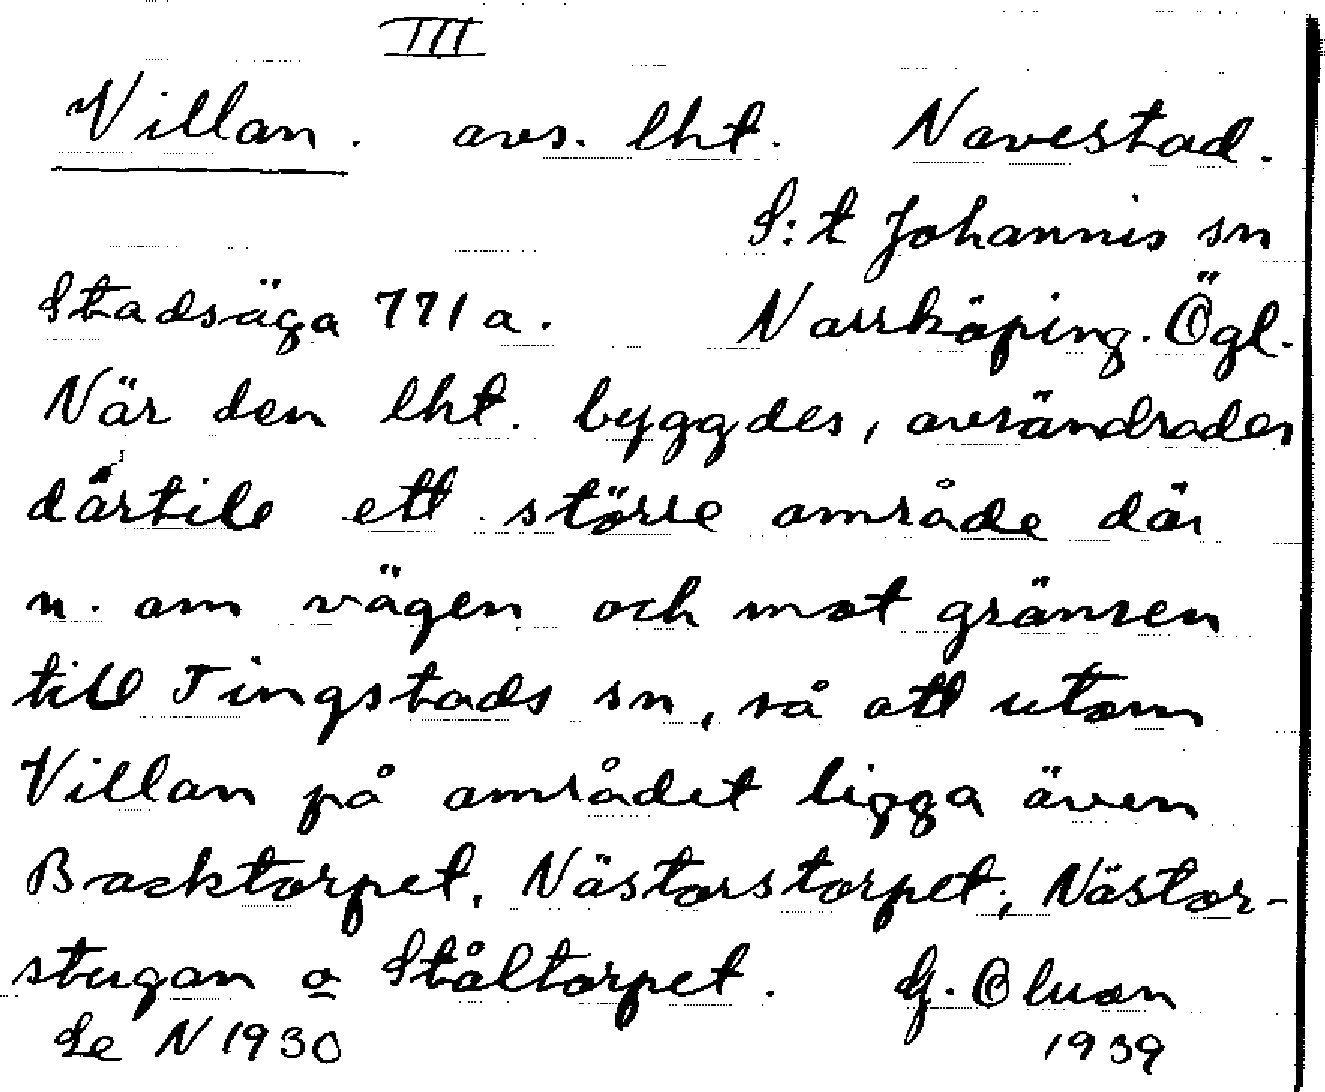 III
Villan. avs. lht. Navestad.
S:t Johannis sn
Stadsäga 771a. Norrköping. Ögl.
När den lht. byggdes, avsöndrades
därtill ett större område där
n. om vägen och mot gränsen
till Tingstads sn, så att utom
Villan på området ligga även
Backtorpet, Nästorstorpet, Nästor-
stugan o Ståltorpet. G. Olson
Se N 1930 1939